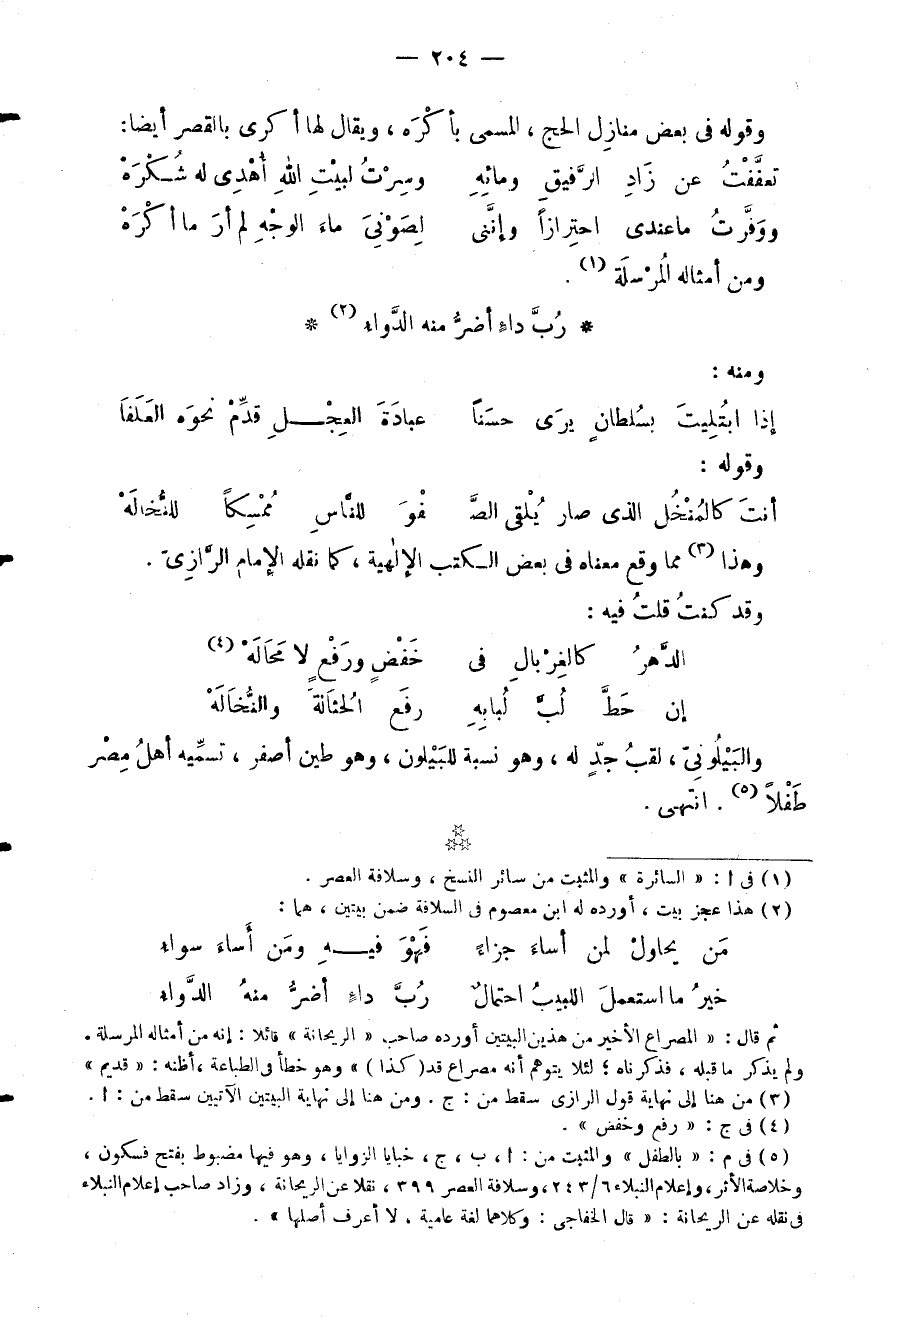 — ٢٠٤ —
وقوله فى بعض منازل الحج ، المسمى بأكْرَه ، ويقال لها أكرى بالقصر أيضا:
تعفَّفْتُ عن زَادِ الرَّفيقِ ومائِهِ وسِرْتُ لبيْتِ اللهِ أُهْدِى له شُكْرَهْ
ووَفَّرتُ ماعندى احتِرازاً وإنَّنى لِصَوْنِىَ ماءَ الوجْهِ لم أرَ ما أكْرَهْ
ومن أمثاله المُرْسلَة (١) .
* رُبَّ داءٍ أضرُّ منه الدَّواء (٢) *
ومنه :
إذا ابتُلِيتَ بسُلطانٍ يرَى حسَناً عبادَةَ العِجْلِ قدِّمْ نحوَه العَلَفَا
وقوله :
أنتَ كالمُنْخُل الذى صار يُلْقى الصَّ فْوَ للنَّاسِ مُمْسِكاً للنُّخالَهْ
وهذا (٣) مما وقع معناه فى بعض الكتب الإلٰهية ، كما نقله الإمام الرَّازِىّ .
وقد كنتُ قلتُ فيه :
الدَّهرُ كالغِرْبالِ فى خَفْضٍ ورَفْعٍ لا مَحَالَهْ (٤)
إن حَطَّ لُبَّ لُبابِهِ رفَع الحُثالةَ والنُّخَالَهْ
والبَيْلُونِىّ ، لقبُ جدٍّ له ، وهو نسبة للبَيْلون ، وهو طين أصفر ، تسمِّيه أهلُ مِصْر
طَفْلاً (٥) . انتهى .
(١) فى ا : « السائرة » والمثبت من سائر النسخ ، وسلافة العصر .
(٢) هذا عجز بيت ، أورده له ابن معصوم فى السلافة ضمن بيتين ، هما :
مَن يحاولْ لمن أساءَ جزاءً فَهْوَ فيه ومَن أَساءَ سواء
خيرُ ما استعملَ اللبيبُ احتمالٌ رُبَّ داءٍ أضرُّ منهُ الدَّواء
ثم قال : « المصراع الأخير من هذين البيتين أورده صاحب « الريحانة » قائلا : إنه من أمثاله المرسلة .
ولم يذكر ما قبله ، فذكرناه ؛ لئلا يتوهم أنه مصراع قد( كذا ) » وهو خطأ فى الطباعة ،أظنه : « قديم »
(٣) من هنا إلى نهاية قول الرازى سقط من : ج . ومن هنا إلى نهاية البيتين الآتيين سقط من : ا .
(٤) فى ج : « رفع وخفض » .
(٥) فى م : « بالطفل » والمثبت من : ا ، ب ، ج ، خبايا الزوايا ، وهو فيها مضبوط بفتح فسكون ،
وخلاصة الأثر، وإعلام النبلاء ٢٤٣/٦، وسلافة العصر ٣٩٩ ، نقلا عن الريحانة ، وزاد صاحب إعلام النبلاء
فى نقله عن الريحانة : « قال الخفاجى : وكلاهما لغة عامية ، لا أعرف أصلها » .